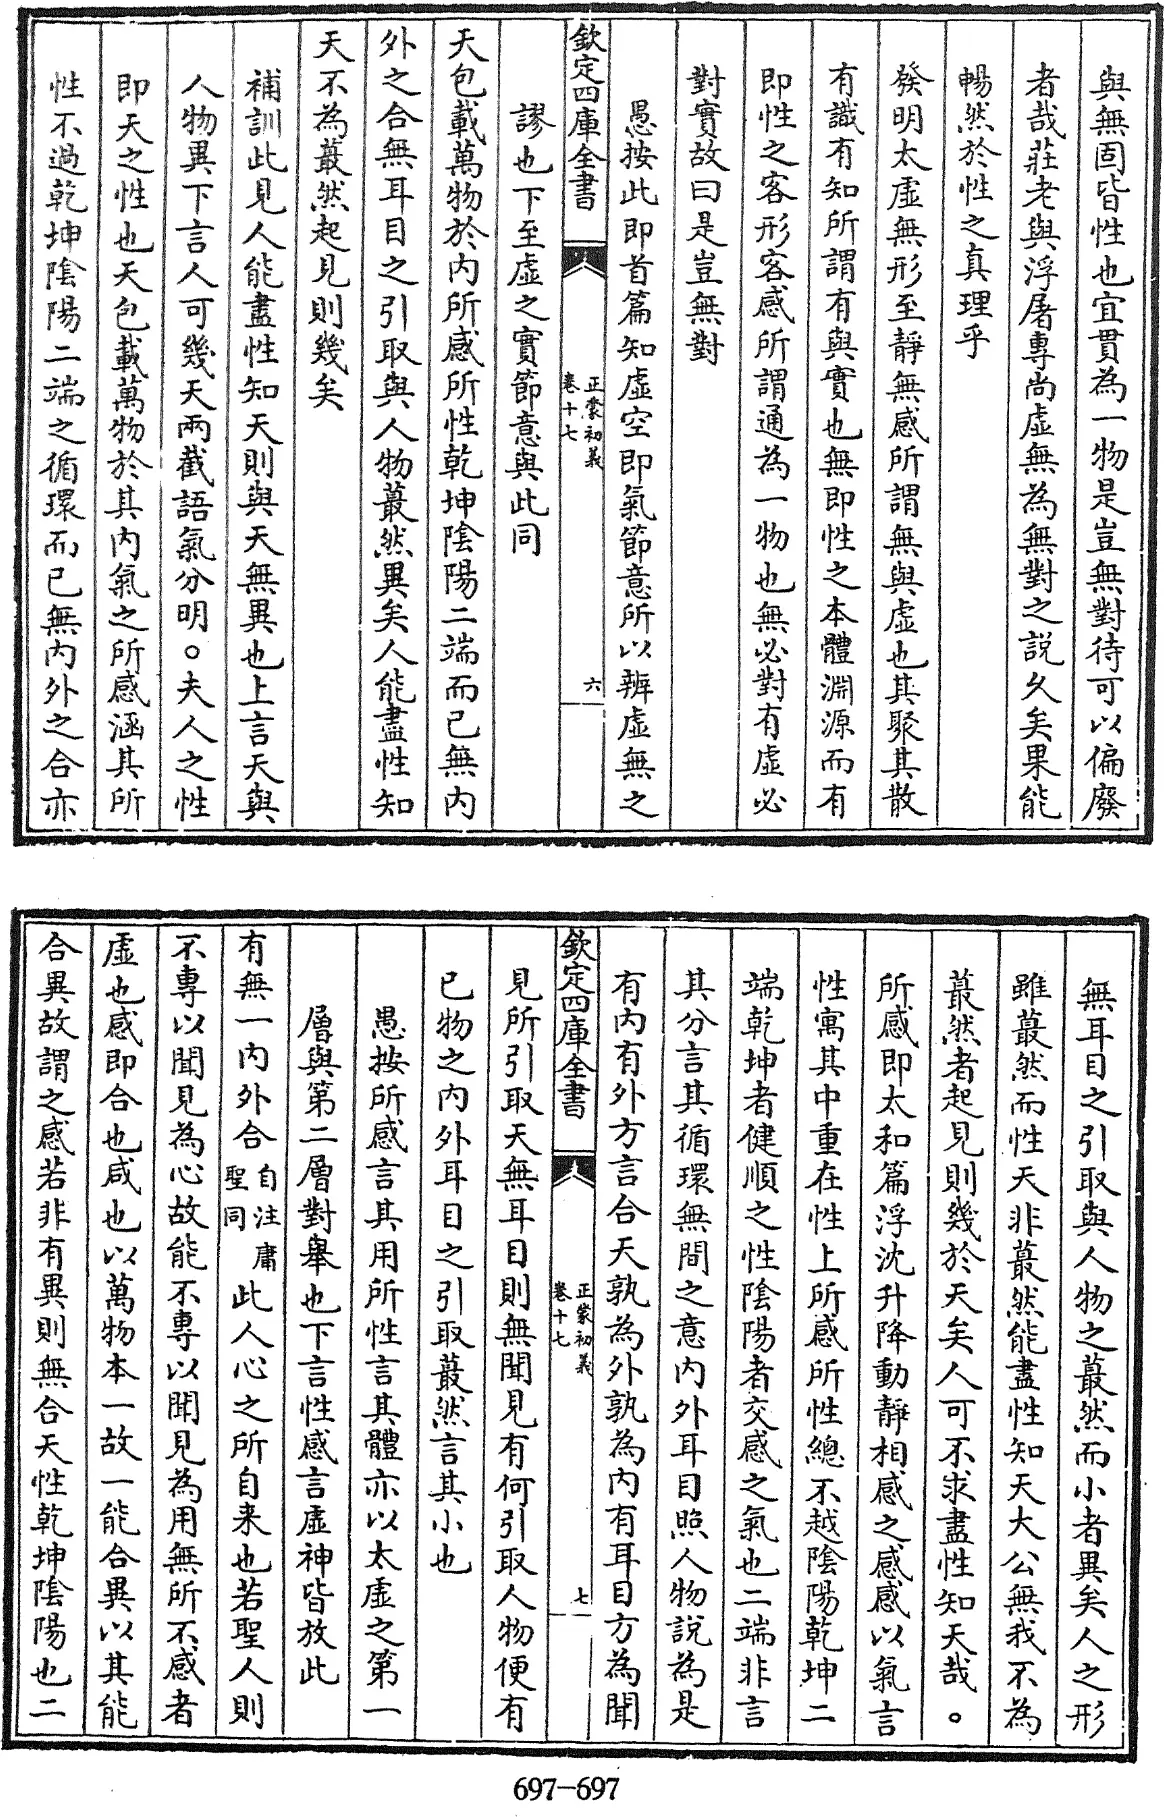 與無固皆性也宜貫為一物是豈無對待可以偏廢
者哉莊老與浮屠專尚虛無為無對之説久矣果能
暢然於性之真理乎
發明太虛無形至靜無感所謂無與虛也其聚其散
有識有知所謂有與實也無即性之本體淵源而有
即性之客形客感所謂通為一物也無必對有虛必
對實故曰是豈無對
愚按此即首篇知虛空即氣節意所以辨虛無之
欽定四庫全書
正蒙初義
卷十七
六
謬也下至虛之實節意與此同
天包載萬物於内所感所性乾坤陰陽二端而已無内
外之合無耳目之引取與人物蕞然異矣人能盡性知
天不為蕞然起見則幾矣
補訓此見人能盡性知天則與天無異也上言天與
人物異下言人可幾天兩截語氣分明○夫人之性
即天之性也天包載萬物於其内氣之所感涵其所
性不過乾坤陰陽二端之循環而已無内外之合亦
無耳目之引取與人物之蕞然而小者異矣人之形
雖蕞然而性天非蕞然能盡性知天大公無我不為
蕞然者起見則幾於天矣人可不求盡性知天哉○
所感即太和篇浮沈升降動靜相感之感感以氣言
性寓其中重在性上所感所性總不越陰陽乾坤二
端乾坤者健順之性陰陽者交感之氣也二端非言
其分言其循環無間之意内外耳目照人物説為是
有内有外方言合天孰為外孰為内有耳目方為聞
欽定四庫全書
正蒙初義
卷十七
七
見所引取天無耳目則無聞見有何引取人物便有
已物之内外耳目之引取蕞然言其小也
愚按所感言其用所性言其體亦以太虛之第一
層與第二層對舉也下言性感言虛神皆放此
有無一内外合自注庸聖同此人心之所自來也若聖人則
不專以聞見為心故能不專以聞見為用無所不感者
虛也感即合也咸也以萬物本一故一能合異以其能
合異故謂之感若非有異則無合天性乾坤陰陽也二
697-697